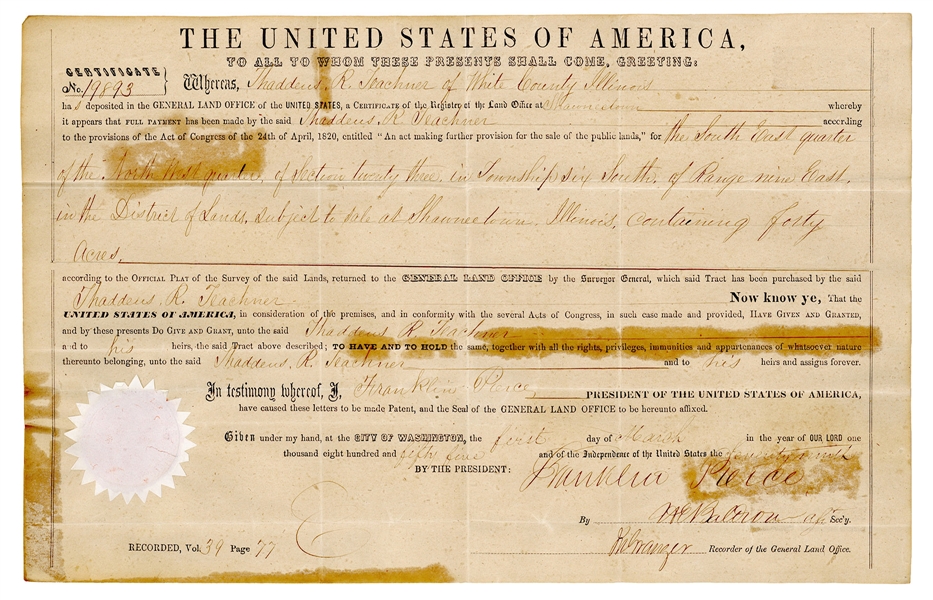 THE UNITED STATES OF AMERICA,
TO ALL TO WHOM THESE PRESENTS SHALL COME, GREETING:
CERTIFICATE
No. 19893 } Whereas, Thaddeus, R. Teachner of White County Illinois
has deposited in the GENERAL LAND OFFICE of the UNITED STATES, a CERTIFICATE of the Register of the Land Office at Shawneetown whereby
it appears that FULL PAYMENT has been made by the said Thaddeus, R. Teachner according
to the provisions of the Act of Congress of the 24th of April, 1820, entitled "An act making further provision for the sale of the public lands," for the South East quarter
of the North West quarter, of Section twenty three, in Township six South, of Range nine East,
in the District of Lands, subject to sale at Shawneetown, Illinois, containing forty
Acres,
according to the OFFICIAL PLAT of the Survey of the said Lands, returned to the GENERAL LAND OFFICE by the Surveyor General, which said Tract has been purchased by the said
Thaddeus, R. Teachner Now know ye, That the
UNITED STATES OF AMERICA, in consideration of the premises, and in conformity with the several Acts of Congress, in such case made and provided, HAVE GIVEN AND GRANTED,
and by these presents DO GIVE AND GRANT, unto the said Thaddeus R. Teachner
and to his heirs, the said Tract above described; TO HAVE AND TO HOLD the same, together with all the rights, privileges, immunities and appurtenances of whatsoever nature
thereunto belonging, unto the said Thaddeus, R. Teachner and to his heirs and assigns forever.
In testimony whereof, I, Franklin Pierce, PRESIDENT OF THE UNITED STATES OF AMERICA,
have caused these letters to be made Patent, and the Seal of the GENERAL LAND OFFICE to be hereunto affixed.
Given under my hand, at the CITY OF WASHINGTON, the first day of March in the year of OUR LORD one
thousand eight hundred and fifty five and of the Independence of the United States the seventy ninth
BY THE PRESIDENT: Franklin Pierce
By Sec'y.
RECORDED, Vol. 39 Page 77 Recorder of the General Land Office.